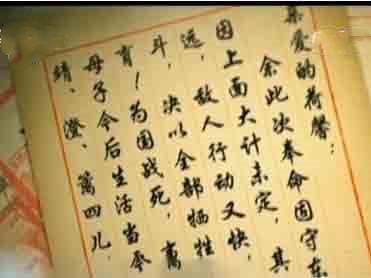 亲爱的荷馨：
余此次奉命固守东
因上面大计未定，其
远，敌人行动又快，
斗，决以全部牺牲
育！为国战死，
母子今后生活，当
靖、澄、篱四儿，